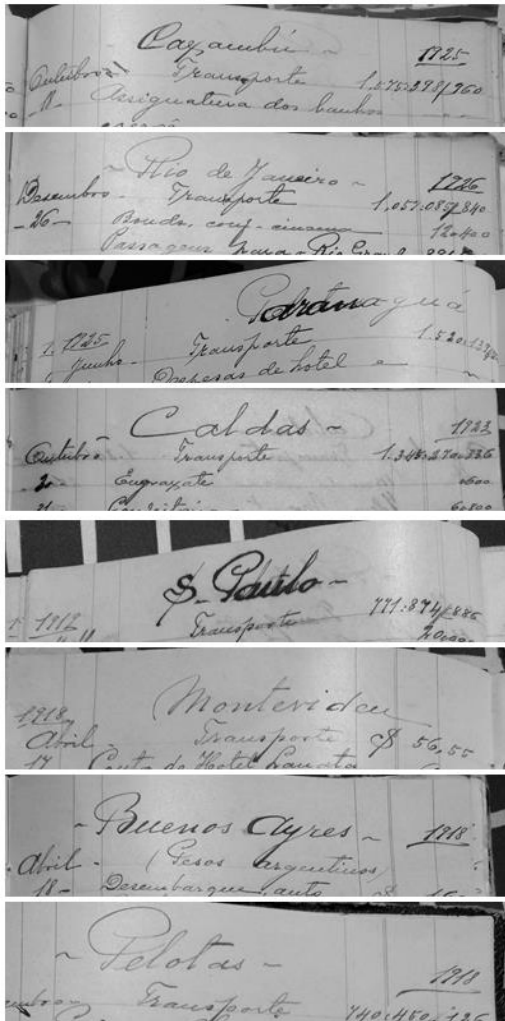 Caxambú - 1925
Outubro Transporte 1.075:298/960
11 Assignatura dos banhos
- Rio de Janeiro - 1926
Desembro - Transporte 1,057:085/840
- 26 - Bonds, conf - cinema 12.400
Passagens para - Rio Grande
Paranaguá
1925
Junho - Transporte 1.520:137
Despesas de hotel e
Caldas - 1923
Outubro Transporte 1.345:270.836
20 Engraxate .600
21 6.800
S. Paulo -
1917 Transporte 771:874/886
20.000
Montevideu
1918
Abril - Transporte $ 56,55
17 Conta do Hotel Lanata
- Buenos Ayres - 1918
Abril - (Pesos argentinos)
18 - Desembarque, auto
- Pelotas - 1918
Transporte 740:450.126